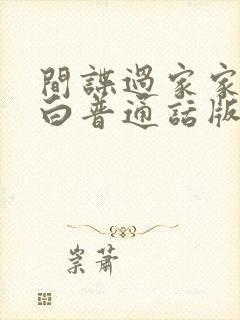 間諜過家家
白普通話版
崇蕭